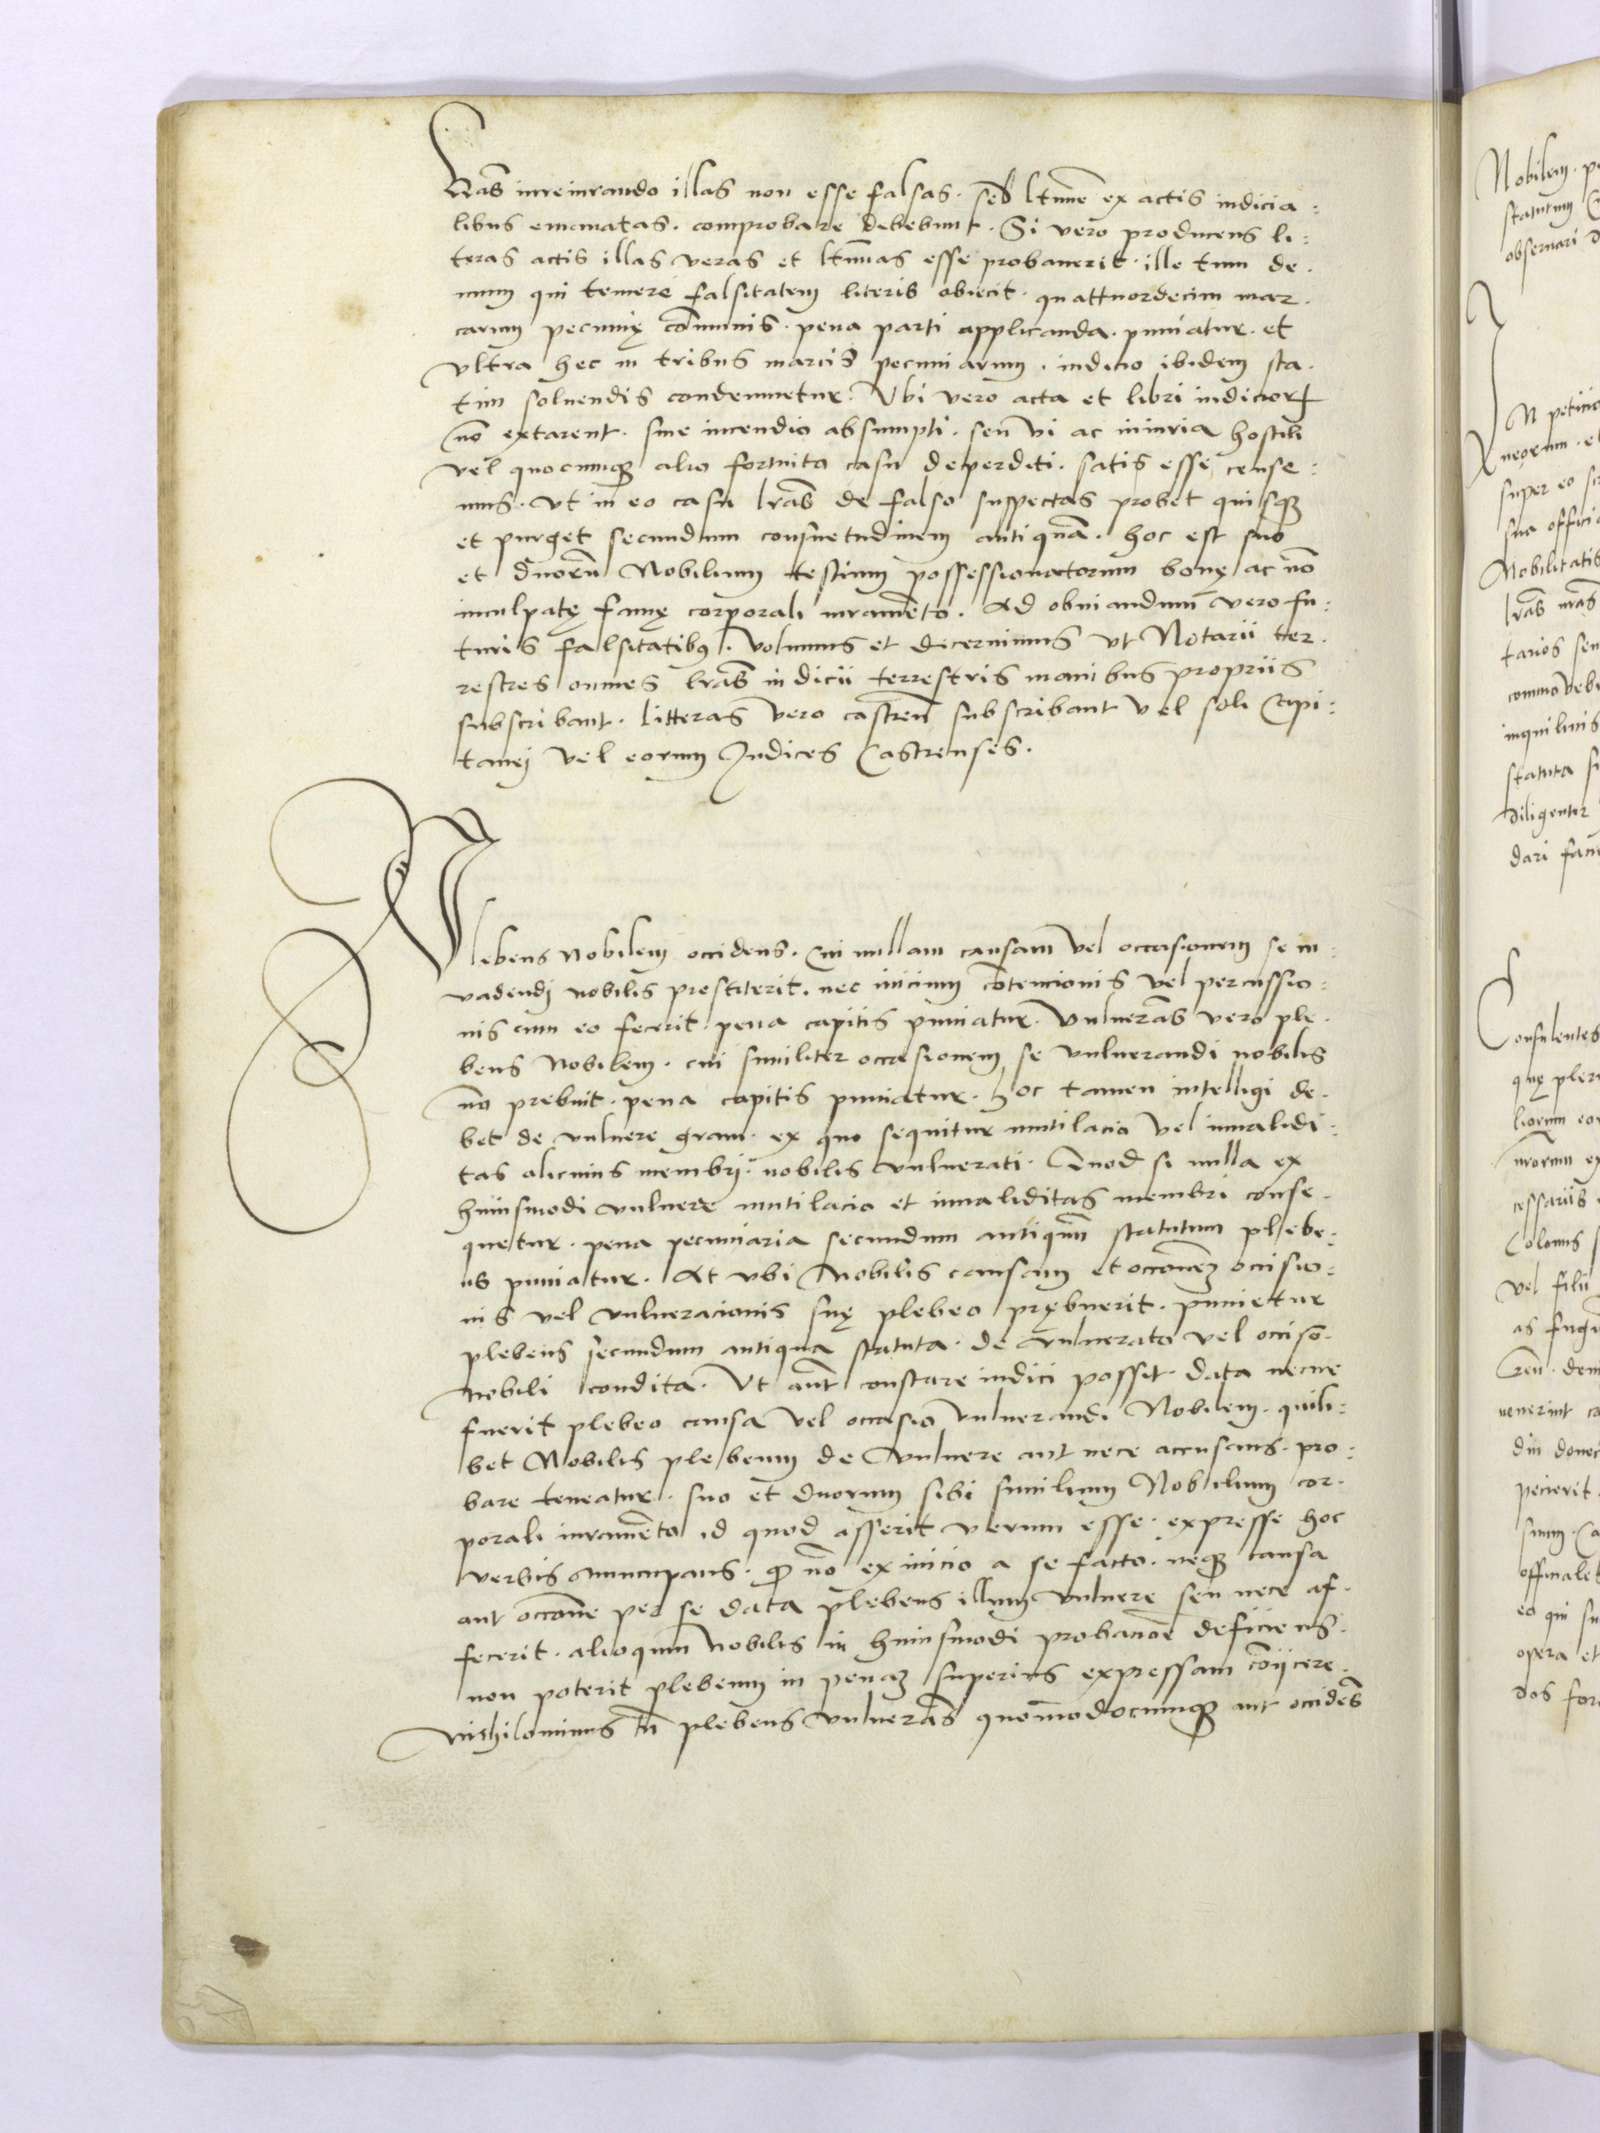 Lras iureiurando illas non esse falsas. sed ltime ex actis iudicia:
libus emanatas. comprobare debebunt. Si vero producens li:
teras actis illas veras et ltimas esse probauerit. ille tum de.
mum qui temere falsitatem literis obiecit. quattuordecim mar.
carum pecunię cominis. pena parti applicanda. puniatur. et
vltra hec in tribus marcis pecuniarum. iudicio ibidem sta.
tim soluendis condemnetur. Vbi vero acta et libri iudicior
no extarent. siue incendio absumpti. seu vi ac iniuria hostili
vel quocumqꝫ alio fortuito casu deperditi. satis esse cense:
mus. vt in eo casu lras de falso suspectas probet quisqꝫ
et purget secundum consuetudinem antiquā. hoc est suo
et duorū Nobilium testium possessionatorum bonę ac nō
inculpatę famę corporali iuramēto. Ad obuiandum vero fu:
turis falsitatibꝰ. volumus et decernimus vt Notarii ter.
restres omnes lras iudicii terrestris manibus propriis
subscribant. litteras vero castreñ subscribant vel soli Capi:
tanei vel eorum Iudices Castrenses.
Plebeus nobilem occidens. cui nullam causam vel occasionem se in:
vadendi nobilis prestiterit. nec inicium cōtencionis vel percussio:
nis cum eo fecerit. pena capitis puniatur. Vulnerās vero ple.
beus Nobilem. cui similiter occasionem se vulnerandi nobilis
nō prebuit. pena capitis puniatur. hoc tamen intelligi de.
bet de vulnere graui. ex quo sequitur mutilacio vel inualidi:
tas alicuius membri. nobilis vulnerati. Quod si nulla ex
huiusmodi vulnere mutilacio et inualiditas membri conse.
quetur. pena pecuniaria secundum antiquū statutum plebe:
us puniatur. At vbi Nobilis causam et occonēꝫ occisio:
nis vel vulneracionis suę plebeo prębuerit. punietur
plebeus secundum antiqua statuta. de vulnerato vel occiso.
nobili condita. Vt aūt constare iudici possit. data necne
fuerit plebeo causa vel occasio vulnerandi Nobilem. quili:
bet Nobilis plebeum de vulnere aut nece accusans. pro:
bare teneatur. suo et duorum sibi similium Nobilium cor.
porali iuramēto id quod asserit verum esse. expresse hoc
verbis nuncupans. ꝙ nō ex inicio a se facto. neqꝫ causa
aut occone per se data plebeus illum vulnere seu nece af.
fecerit. alioquin nobilis in huiusmodi probacōe deficiens.
non poterit plebeum in penaꝫ superius expressam cōijcere.
Nihilominus tñ plebeus vulnerās quomodocumqꝫ aut occidēs